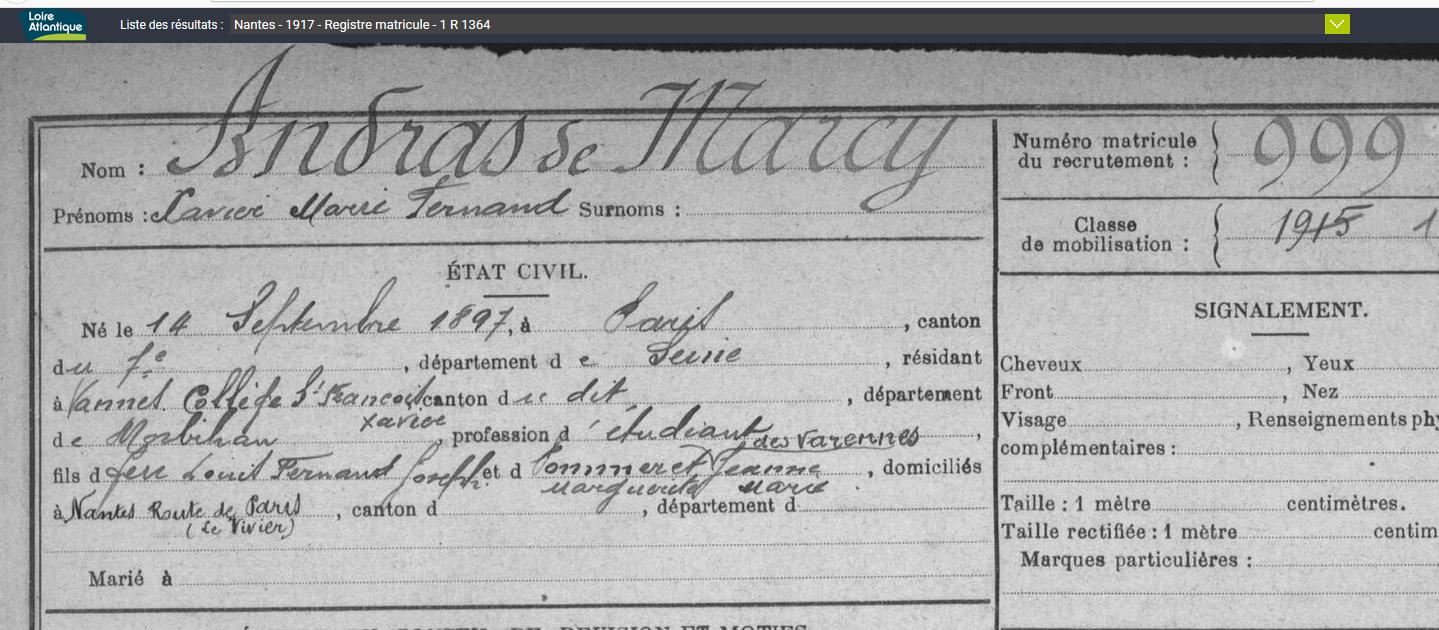 Loire
Atlantique
Liste des résultats : Nantes - 1917 - Registre matricule - 1 R 1364
Nom : Andras de Marcy
Prénoms : Xavier Marie Fernand Surnoms :
ÉTAT CIVIL.
Né le 14 Septembre 1897, à Paris, canton
du 7e, département de Seine, résidant
à Vannes. Collège St François canton du dit, département
Xavier
de Morbihan, profession d'étudiant,
des Varennes
fils de Louis Fernand Joseph et d Pommeret Jeanne, domiciliés
Marguerite Marie
à Nantes Route de Paris, canton d, département d
(Le Vivier)
Marié à
Numéro matricule
du recrutement : 999
Classe
de mobilisation : 1915 1
SIGNALEMENT.
Cheveux, Yeux
Front, Nez
Visage, Renseignements phy
complémentaires :
Taille : 1 mètre centimètres.
Taille rectifiée : 1 mètre centim
Marques particulières :
DE REVISION ET MOTIFS